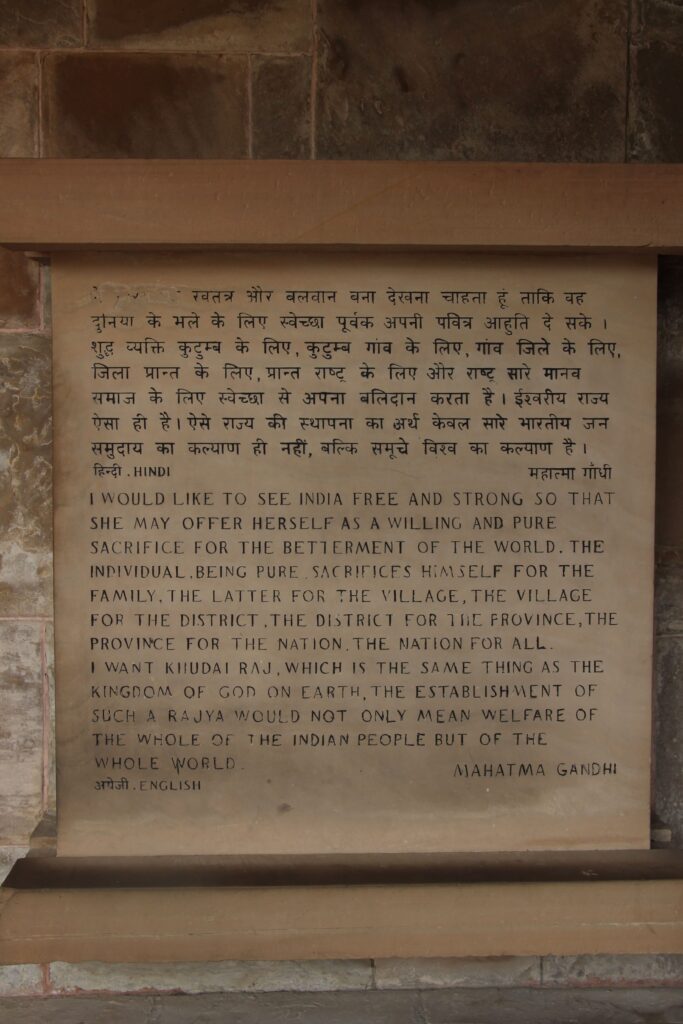 स्वतंत्र और बलवान बना देखना चाहता हूं ताकि वह
दुनिया के भले के लिए स्वेच्छा पूर्वक अपनी पवित्र आहुति दे सके ।
शुद्ध व्यक्ति कुटुम्ब के लिए, कुटुम्ब गांव के लिए, गांव जिले के लिए,
जिला प्रान्त के लिए, प्रान्त राष्ट्र के लिए और राष्ट्र सारे मानव
समाज के लिए स्वेच्छा से अपना बलिदान करता है । ईश्वरीय राज्य
ऐसा ही है । ऐसे राज्य की स्थापना का अर्थ केवल सारे भारतीय जन
समुदाय का कल्याण ही नहीं, बल्कि समूचे विश्व का कल्याण है ।
हिन्दी . HINDI महात्मा गाँधी
I WOULD LIKE TO SEE INDIA FREE AND STRONG SO THAT
SHE MAY OFFER HERSELF AS A WILLING AND PURE
SACRIFICE FOR THE BETTERMENT OF THE WORLD. THE
INDIVIDUAL, BEING PURE, SACRIFICES HIMSELF FOR THE
FAMILY, THE LATTER FOR THE VILLAGE, THE VILLAGE
FOR THE DISTRICT, THE DISTRICT FOR THE PROVINCE, THE
PROVINCE FOR THE NATION, THE NATION FOR ALL.
I WANT KHUDAI RAJ, WHICH IS THE SAME THING AS THE
KINGDOM OF GOD ON EARTH, THE ESTABLISHMENT OF
SUCH A RAJYA WOULD NOT ONLY MEAN WELFARE OF
THE WHOLE OF THE INDIAN PEOPLE BUT OF THE
WHOLE WORLD.
MAHATMA GANDHI
अंग्रेजी . ENGLISH